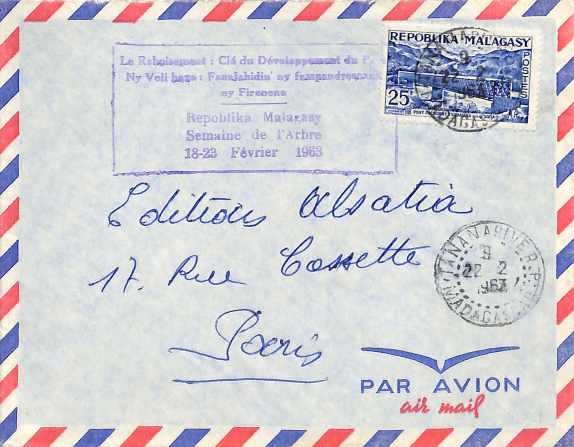 Le Reboisement : Clé du Développement du
Ny Voli-hazo : Fanajahidin' ny
ny Firenena
Repoblika Malagasy
Semaine de l'Arbre
18-23 Février 1963
REPOBLIKA MALAGASY
POSTES
25F
22 2
1963
Editions Alsatia
17. Rue Cassette
Paris
TANANARIVE R.P.
9
22 2
1963
MADAGASCAR
PAR AVION
air mail